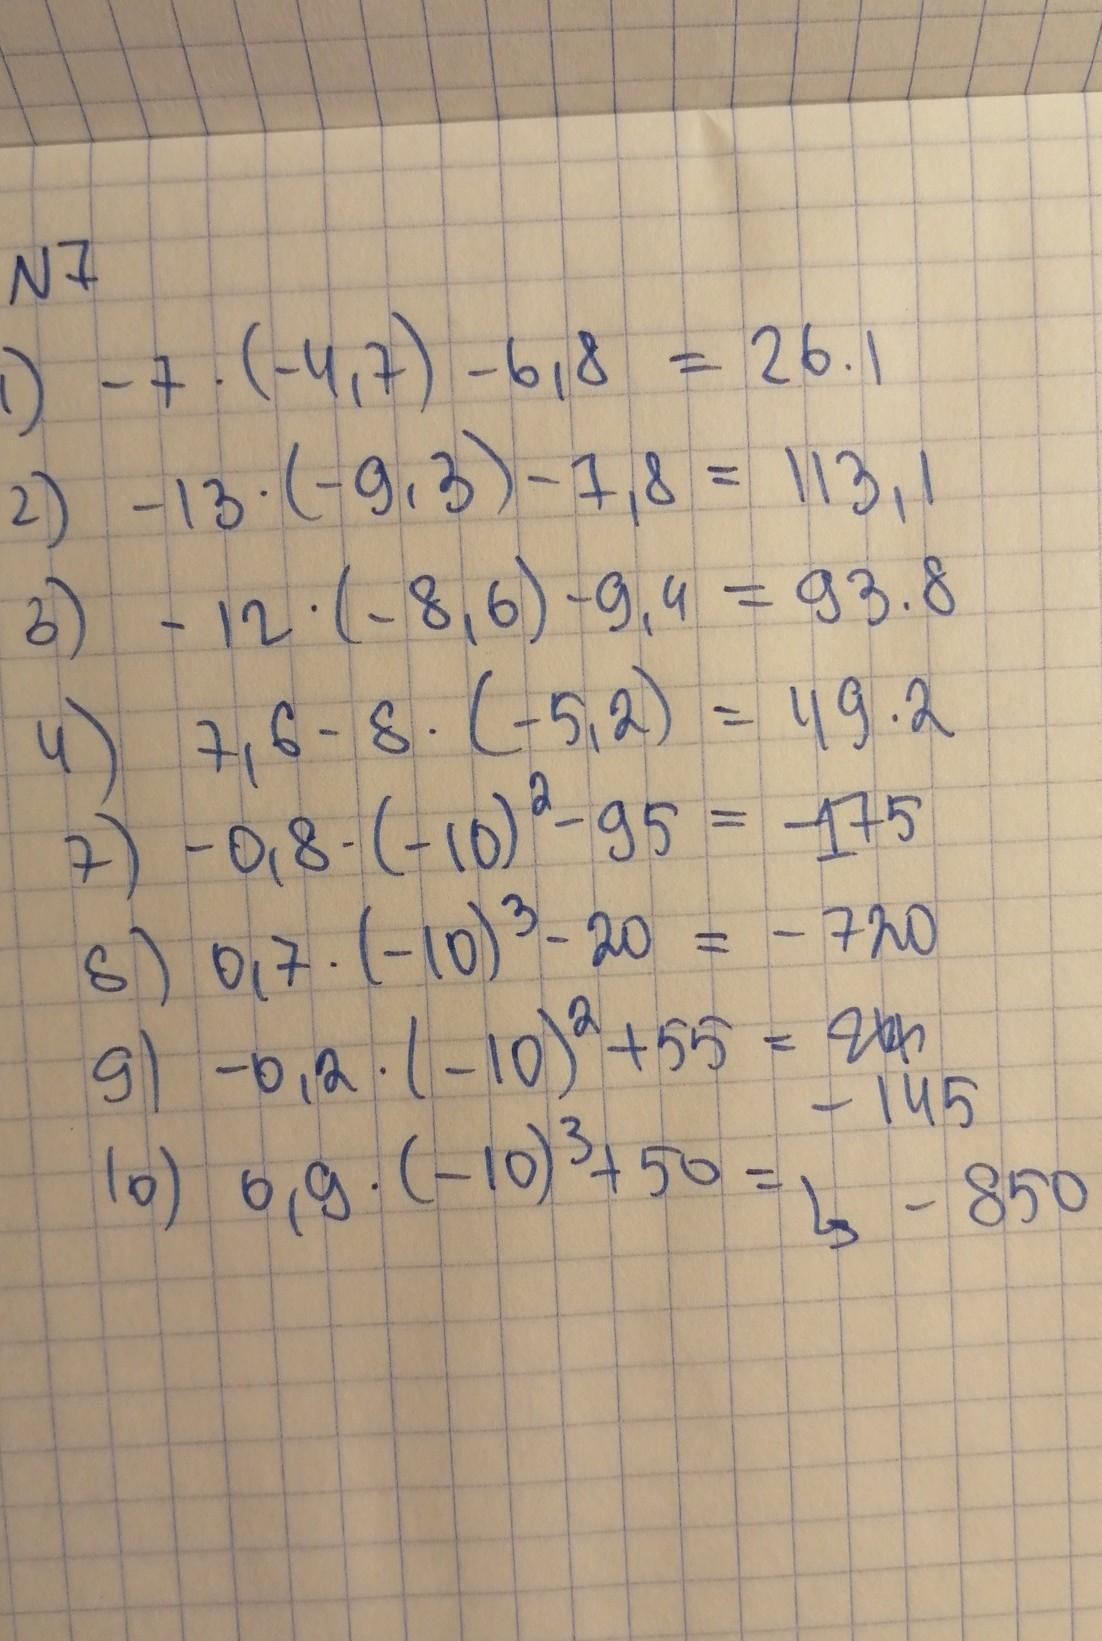 N7
1) -7 · (-4,7) - 6,8 = 26.1
2) -13 · (-9,3) - 7,8 = 113,1
3) -12 · (-8,6) - 9,4 = 93.8
4) 7,6 - 8 · (-5,2) = 49.2
7) -0,8 · (-10)² - 95 = -175
8) 0,7 · (-10)³ - 20 = -720
9) -0,2 · (-10)² + 55 =
-145
10) 0,9 · (-10)³ + 50 = ↳ -850